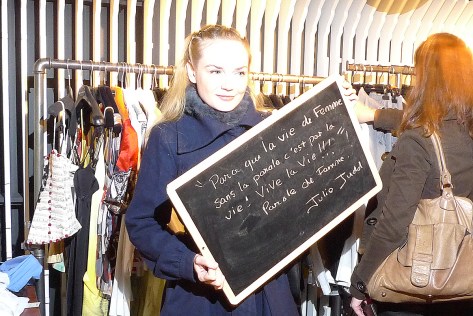 "Parce que la vie de Femme
sans la parole c'est pas la
vie! Vive la Vie!!!"...
Parole de Femme.
Julie Judd